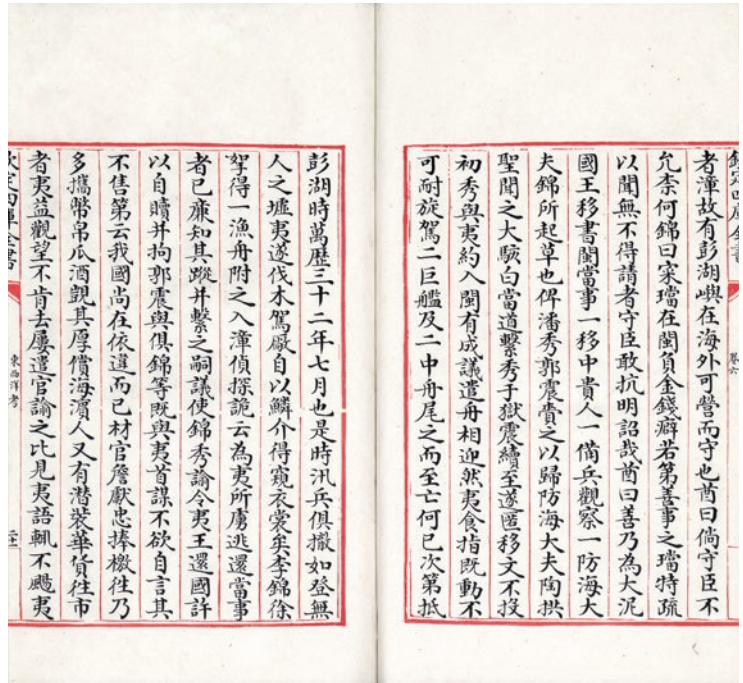 欽定四庫全書
卷六
者漳故有彭湖嶼在海外可營而守也酋曰倘守臣不
允柰何錦曰寀璫在閩負金錢癖若第善事之璫特疏
以聞無不得請者守臣敢抗明詔哉酋曰善乃為大泥
國王移書閩當事一移中貴人一備兵觀察一防海大
夫錦所起草也俾潘秀郭震賫之以歸防海大夫陶拱
聖聞之大駭白當道繫秀于獄震續至遂匿移文不投
初秀與夷約入閩有成議遣舟相迎然夷食指既動不
可耐旋駕二巨艦及二中舟尾之而至亡何已次第抵
彭湖時萬歷三十二年七月也是時汛兵俱撤如登無
人之墟夷遂伐木駕厰自以鱗介得窺衣裳矣李錦徐
拏得一漁舟附之入漳偵探詭云為夷所虜逃還當事
者已廉知其蹤并繫之嗣議使錦秀諭令夷王還國許
以自贖并拘郭震與俱錦等既與夷首謀不欲自言其
不售第云我國尚在依違而已材官詹獻忠捧檄徃乃
多攜幣帛瓜酒覬其厚償海濱人又有潛裝華貨徃市
者夷益觀望不肯去屢遣官諭之比見夷語輒不颺夷
欽定四庫全書
東西洋考
二十一